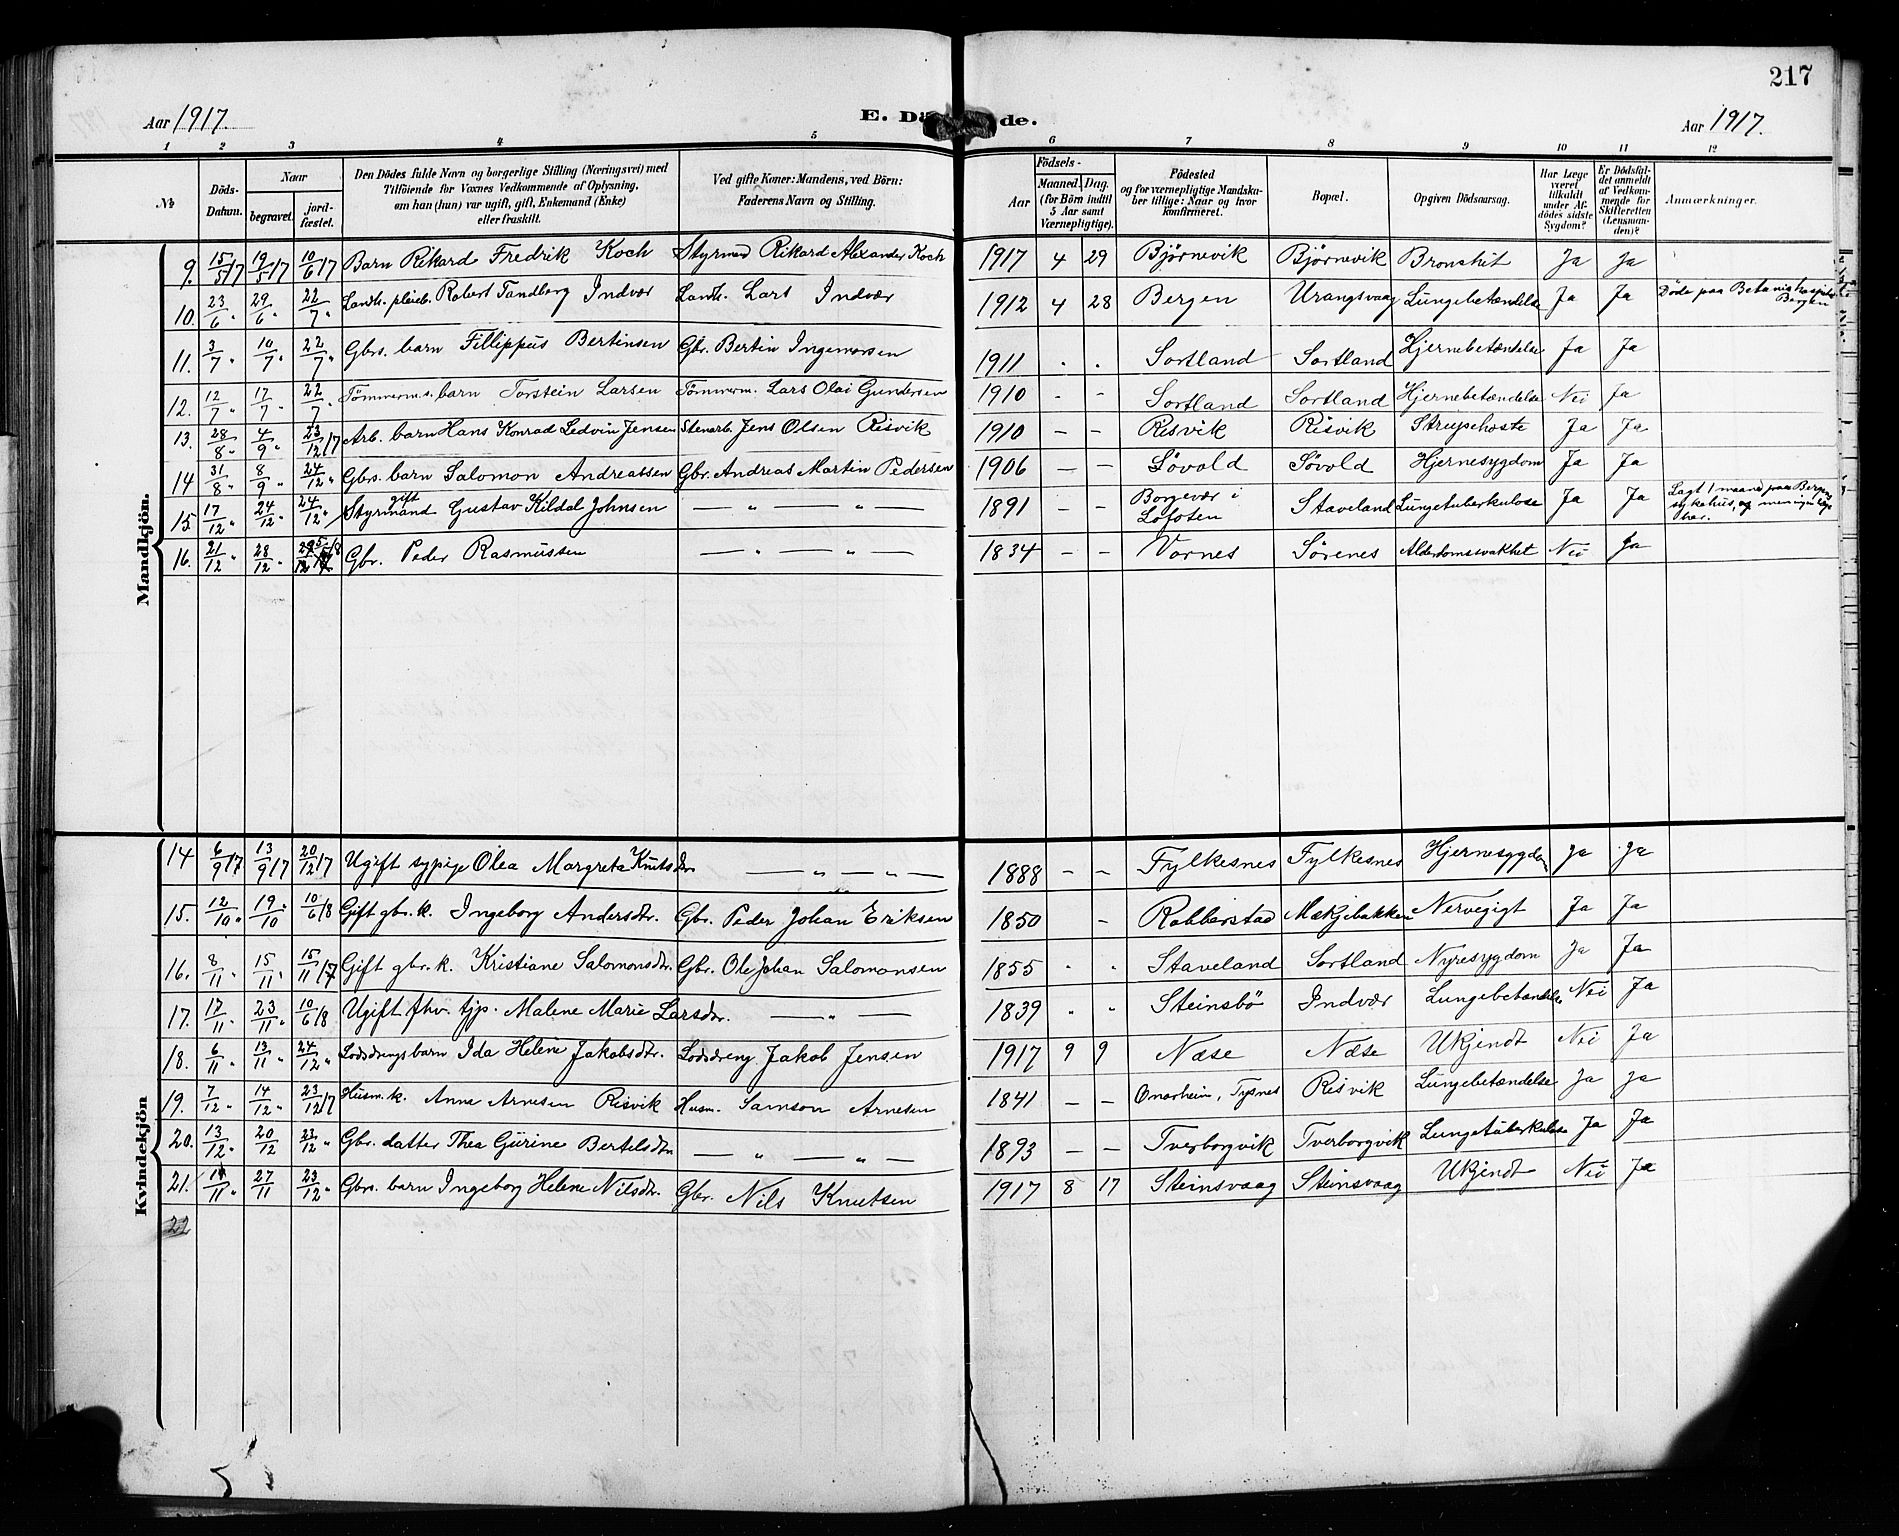 217
Aar 1917. E. Dö de. Aar 1917.
1 2 3 4 5 6 7 8 9 10 11 12
No Döds-Datum. Naar begravet. jord-fæstet. Den Dödes fulde Navn og borgerlige Stilling (Næringsvei) med Tilföiende for Voxnes Vedkommende af Oplysning, om han (hun) var ugift, gift, Enkemand (Enke) eller fraskilt. Ved gifte Koner: Mandens, ved Börn: Faderens Navn og Stilling. Födsels- Aar Maaned. Dag. (for Börn indtil 5 Aar samt Værnepligtige). Födested og for værnepligtige Mandskaber tillige: Naar og hvor konfirmeret. Bopæl. Opgiven Dödsaarsag. Har Læge været tilkaldt under Afdödes sidste Sygdom? Er Dödsfaldet anmeldt af Vedkommende for Skifteretten (Lensmanden)? Anmærkninger.
Mandkjön.
9. 15/5 17 19/5 17 10/6 17 Barn Rikard Fredrik Koch Styrmed Rikard Alexander Koch 1917 4 29 Björnevik Björnevik Bronshit Ja Ja
10. 23/6 " 29/6 " 22/7 " Landh. pleieb. Robert Tandberg Indvær Landh. Lars Indvær 1912 4 28 Bergen Urangsvaag Lungebetændelse Ja Ja Döde paa Betania hospital Bergen
11. 3/7 " 10/7 " 22/7 " Gbrs. barn Fillippus Bertinsen Gbr. Bertin Ingemorsen 1911 " " Sortland Sortland Hjernebetændelse Ja Ja
12. 12/7 " 17/7 " 22/7 " Tömmerm.s. barn Torstein Larsen Tömmerm. Lars Olai Gundersen 1910 - - Sortland Sortland Hjernebetændelse Nei Ja
13. 28/8 " 4/9 " 23/12 17 Arb. barn Hans Konrad Ledvin Jensen Stenarb. Jens Olsen Risvik 1910 — — Risvik Risvik Strupehoste Ja Ja
14 31/8 " 8/9 " 24/12 " Gbrs. barn Salomon Andreassen Gbr. Andreas Martin Pedersen 1906 — — Sövold Sövold Hjernesygdom Ja Ja
15. 17/12 " 24/12 " 24/12 " gift Styrmand Gustav Kildal Johnsen — " — " — 1891 — — Borgevær i Lofoten Staveland Lungetuberkulose Ja Ja Lagt 1 maaned paa Bergens sykehus, og
16. 21/12 " 28/12 " Gbr. Peder Rasmussen — " — " — 1834 — — Vornes Sörenes Alderdomssvakhet Nei Ja
Kvindekjön
14 6/9 17 13/9 17 20/12 17 Ugift sypige Olea Margreta Knutsdtr. — " — " — 1888 — — Fylkesnes Fylkesnes Hjernesygdom Ja Ja
15. 12/10 " 19/10 " 10/6 18 Gift gbr. k. Ingeborg Andersdtr. Gbr. Peder Johan Eriksen 1850 - Robberstad Mækjebakken Nervegigt Ja Ja
16. 8/11 " 15/11 " 15/11 17 Gift gbr. k. Kristiane Salomonsdtr. Gbr. Ole Johan Salomonsen 1855 " " Staveland Sortland Nyresygdom Ja Ja
17. 17/11 " 23/11 " 10/6 18 Ugift fhv. tjp. Malene Marie Larsdtr. — " — 1839 " " Steinsbö Indvær Lungebetændelse Nei Ja
18. 6/11 " 13/11 " 24/12 " Lodsdrengsbarn Ida Helene Jakobsdtr. Lodsdreng Jakob Jensen 1917 9 9 Næse Næse Ukjendt Nei Ja
19. 7/12 " 14/12 " 23/12 17 Husm. k. Anna Arnesen Risvik Husm. Samson Arnesen 1841 — — Onarheim, Tysnes Risvik Lungebetændelse Ja Ja
20. 13/12 " 20/12 23/12 " Gbr. datter Thea Gurine Bertelsdtr. — " — " — 1893 — — Tverborgvik Tverborgvik Lungetuberkulose Ja Ja
21. 19/11 " 27/11 23/12 " Gbrs. barn Ingeborg Helene Nilsdtr. Gbr. Nils Knutsen 1917 8 17 Steinsvaag Steinsvaag Ukjendt Nei Ja
22